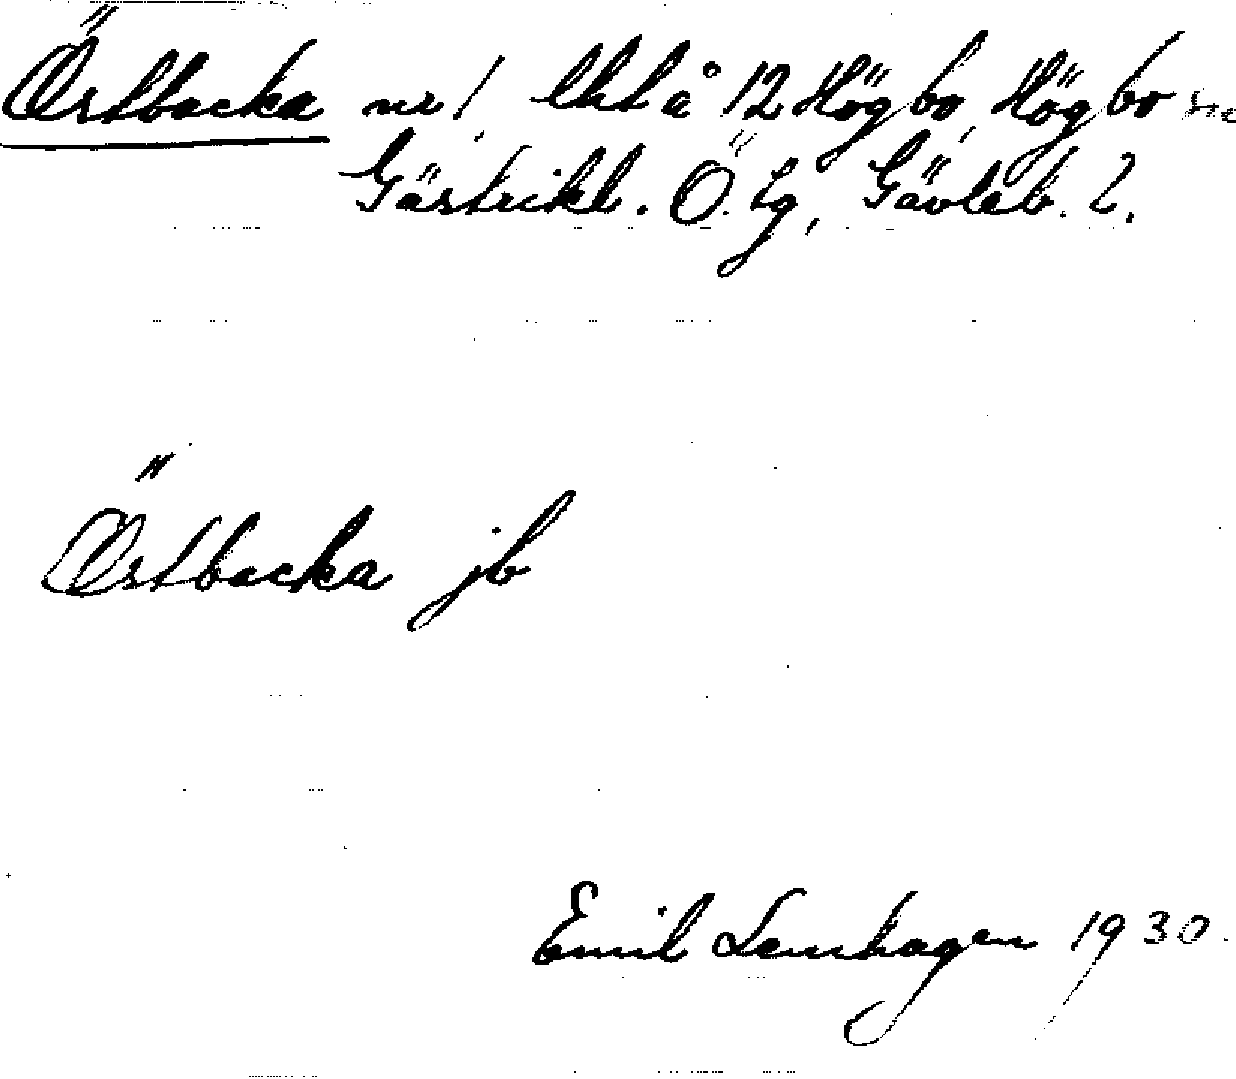 Östbacka nr 1, Uht å 12 Högbo, Högbo sn
Gästrikl. Ö. Tg, Gävleb. l.
Östbacka jb
Emil Lenhagen 1930.